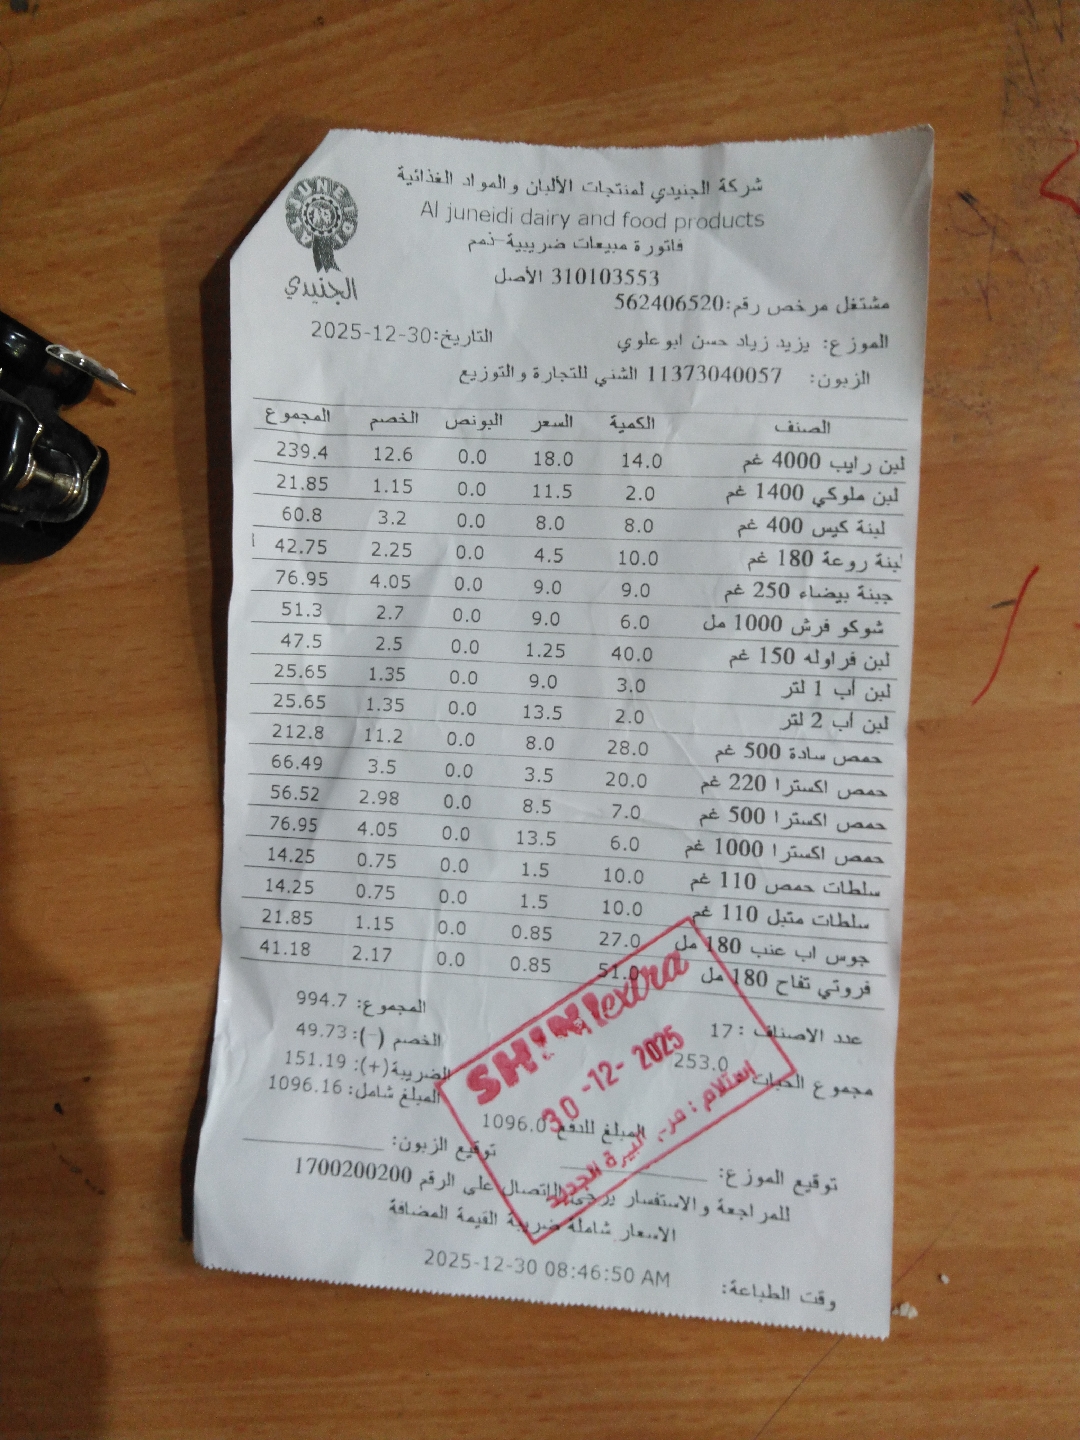 شركة الجنيدي لمنتجات الألبان والمواد الغذائية
Al juneidi dairy and food products
فاتورة مبيعات ضريبية-ذمم
310103553 الأصل
الجنيدي
مشتغل مرخص رقم:562406520
الموزع: يزيد زياد حسن ابو علوي التاريخ:2025-12-30
الزبون: 11373040057 الشني للتجارة والتوزيع
الصنف الكمية السعر البونص الخصم المجموع
لبن رايب 4000 غم 14.0 18.0 0.0 12.6 239.4
لبن ملوكي 1400 غم 2.0 11.5 0.0 1.15 21.85
لبنة كيس 400 غم 8.0 8.0 0.0 3.2 60.8
لبنة روعة 180 غم 10.0 4.5 0.0 2.25 42.75
جبنة بيضاء 250 غم 9.0 9.0 0.0 4.05 76.95
شوكو فرش 1000 مل 6.0 9.0 0.0 2.7 51.3
لبن فراوله 150 غم 40.0 1.25 0.0 2.5 47.5
لبن أب 1 لتر 3.0 9.0 0.0 1.35 25.65
لبن أب 2 لتر 2.0 13.5 0.0 1.35 25.65
حمص سادة 500 غم 28.0 8.0 0.0 11.2 212.8
حمص اكسترا 220 غم 20.0 3.5 0.0 3.5 66.49
حمص اكسترا 500 غم 7.0 8.5 0.0 2.98 56.52
حمص اكسترا 1000 غم 6.0 13.5 0.0 4.05 76.95
سلطات حمص 110 غم 10.0 1.5 0.0 0.75 14.25
سلطات متبل 110 غم 10.0 1.5 0.0 0.75 14.25
جوس اب عنب 180 مل 27.0 0.85 0.0 1.15 21.85
فروتي تفاح 180 مل 51.0 0.85 0.0 2.17 41.18
عدد الاصناف : 17 المجموع: 994.7
الخصم (-): 49.73
مجموع الحبات 253.0 الضريبة(+): 151.19
المبلغ شامل: 1096.16
المبلغ للدفع 1096.0
SHINI extra
30-12-2025
إستلام : فرع البيرة الجديد
توقيع الموزع: توقيع الزبون:
للمراجعة والاستفسار يرجى الاتصال على الرقم 1700200200
الاسعار شاملة ضريبة القيمة المضافة
وقت الطباعة: 2025-12-30 08:46:50 AM